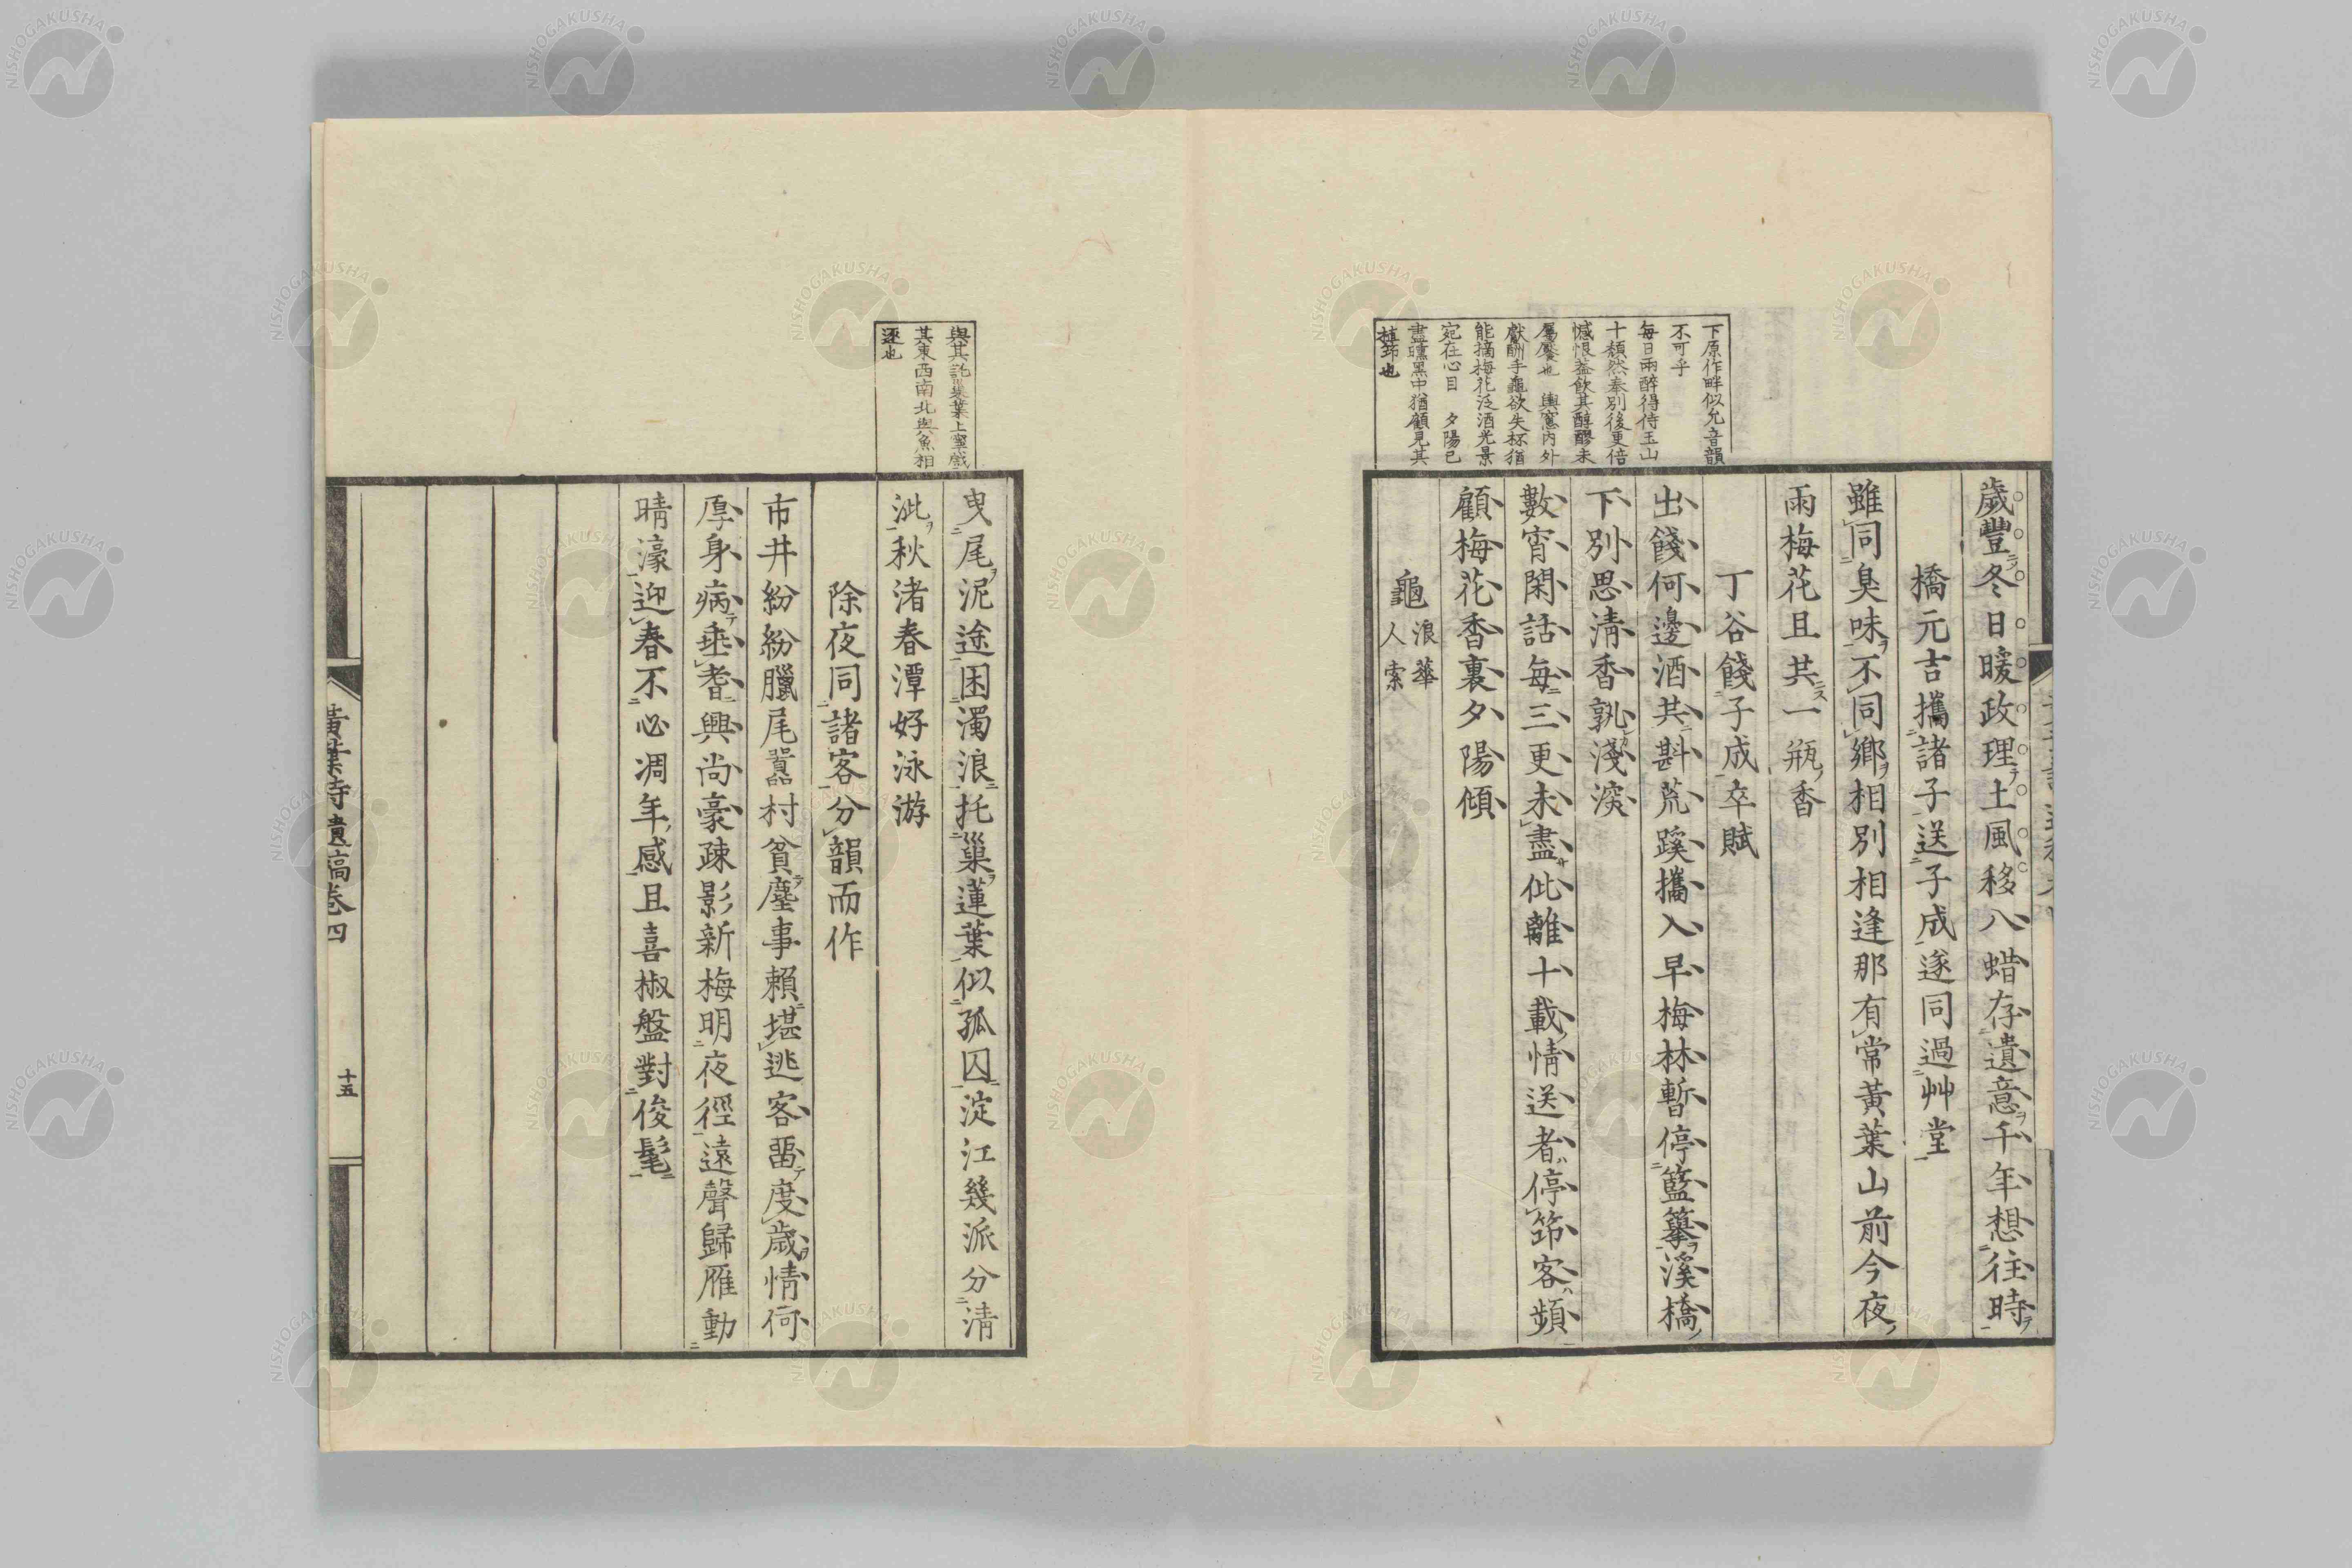 歲豐冬日暖政理土風移八蜡存遺意千年想往時
橋元吉攜諸子送子成遂同過艸堂
雖同臭味不同鄉相別相逢那有常黃葉山前今夜
雨梅花且共一瓶香
丁谷餞子成卒賦
出餞何邊酒共斟荒蹊攜入早梅林暫停籃轝溪橋
下別思清香孰淺深
數宵閑話每三更未盡仳離十載情送者停筇客頻
顧梅花香裏夕陽傾
龜
浪華
人索
下原作畔似允音韻
不可乎
每日兩醉得侍玉山
十頹然奉別後更倍
憾恨蓋飲其醇醪未
屬饜也 輿窻内外
獻酬手龜欲失杯猶
能摘梅花泛酒光景
宛在心目 夕陽已
盡曛黑中猶顧見其
植筇也
曳尾泥途困濁浪托巢蓮葉似孤囚淀江幾派分清
泚秋渚春潭好泳游
除夜同諸客分韻而作
市井紛紛臘尾囂村貧塵事賴堪逃客畱度歲情何
厚身病垂耆興尚豪疎影新梅明夜徑遠聲歸雁動
晴濠迎春不必凋年感且喜椒盤對俊髦
與其託巢葉上寧戲
其東西南北與魚相
逐也
黃葉夕陽邨舍詩遺稿卷四
十五
NISHOGAKUSHA